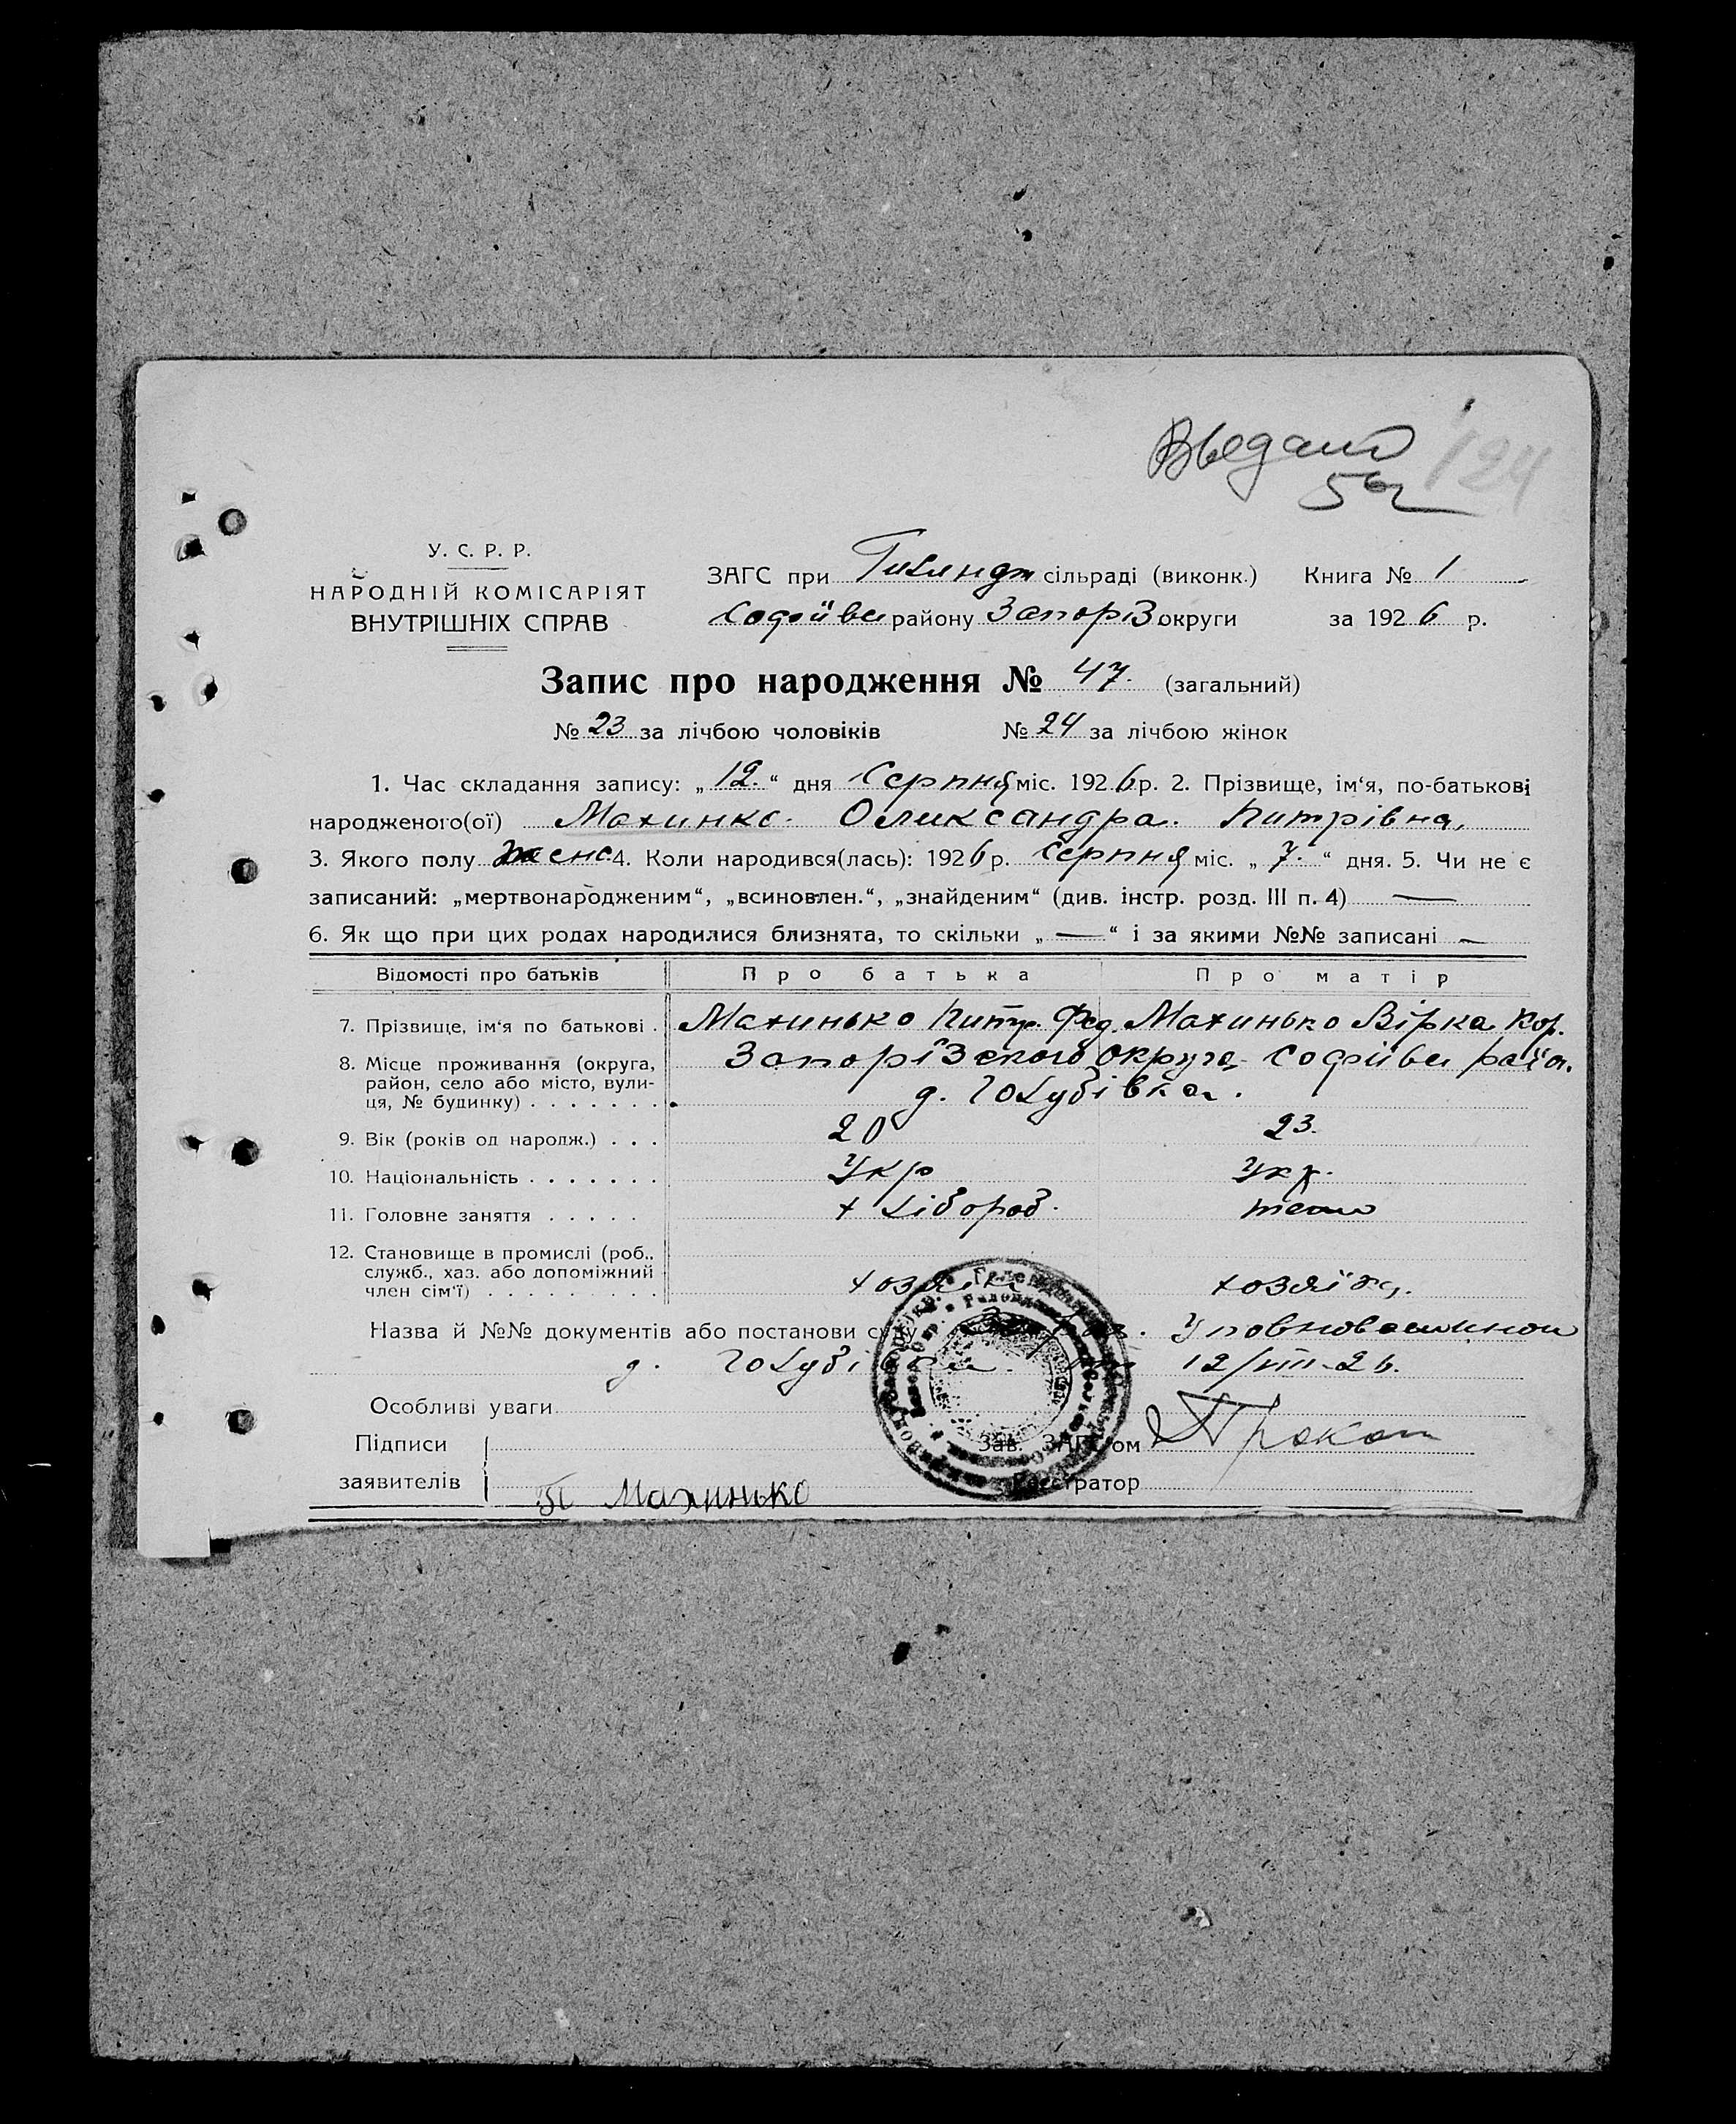 124
52
У. С. Р. Р.
НАРОДНІЙ КОМІСАРІЯТ
ВНУТРІШНІХ СПРАВ
ЗАГС при Гиляндж сільраді (виконк.) Книга № 1
Софіїве району Запоріз округи за 1926 р.
Запис про народження № 47. (загальний)
№ 23 за лічбою чоловіків № 24 за лічбою жінок
1. Час складання запису: „12.“ дня Серпня міс. 1926 р. 2. Прізвище, ім‘я, по-батькові
народженого(ої) Махинко. Олександра. Питрівна,
3. Якого полу жено 4. Коли народився(лась): 1926 р. Серпня міс. „7.“ дня. 5. Чи не є
записаний: „мертвонародженим“, „всиновлен.“, „знайденим“ (див. інстр. розд. III п. 4) —
6. Як що при цих родах народилися близнята, то скільки „—“ і за якими №№ записані —
Відомості про батьків Про батька Про матір
7. Прізвище, ім‘я по батькові . Махинько Питр. Фед. Махинько Вірка Кор.
8. Місце проживання (округа, Запорізского округа Софіїве район.
район, село або місто, вули-
ця, № будинку) . . . . . . . д. Голубівка.
9. Вік (років од народж.) . . . 20 23.
10. Національність . . . . . . . Укр Укр.
11. Головне заняття . . . . . хлібороб. тоже
12. Становище в промислі (роб.,
служб., хаз. або допоміжний
член сім‘ї) . . . . . . . . . хозяїн хозяїка.
Назва й №№ документів або постанови суду Уповноваженои
д. Голубівки. 12/VIII-26.
Особливі уваги
Підписи Зав. ЗАГСом Прокоп
заявителів П Махинько Реєстратор